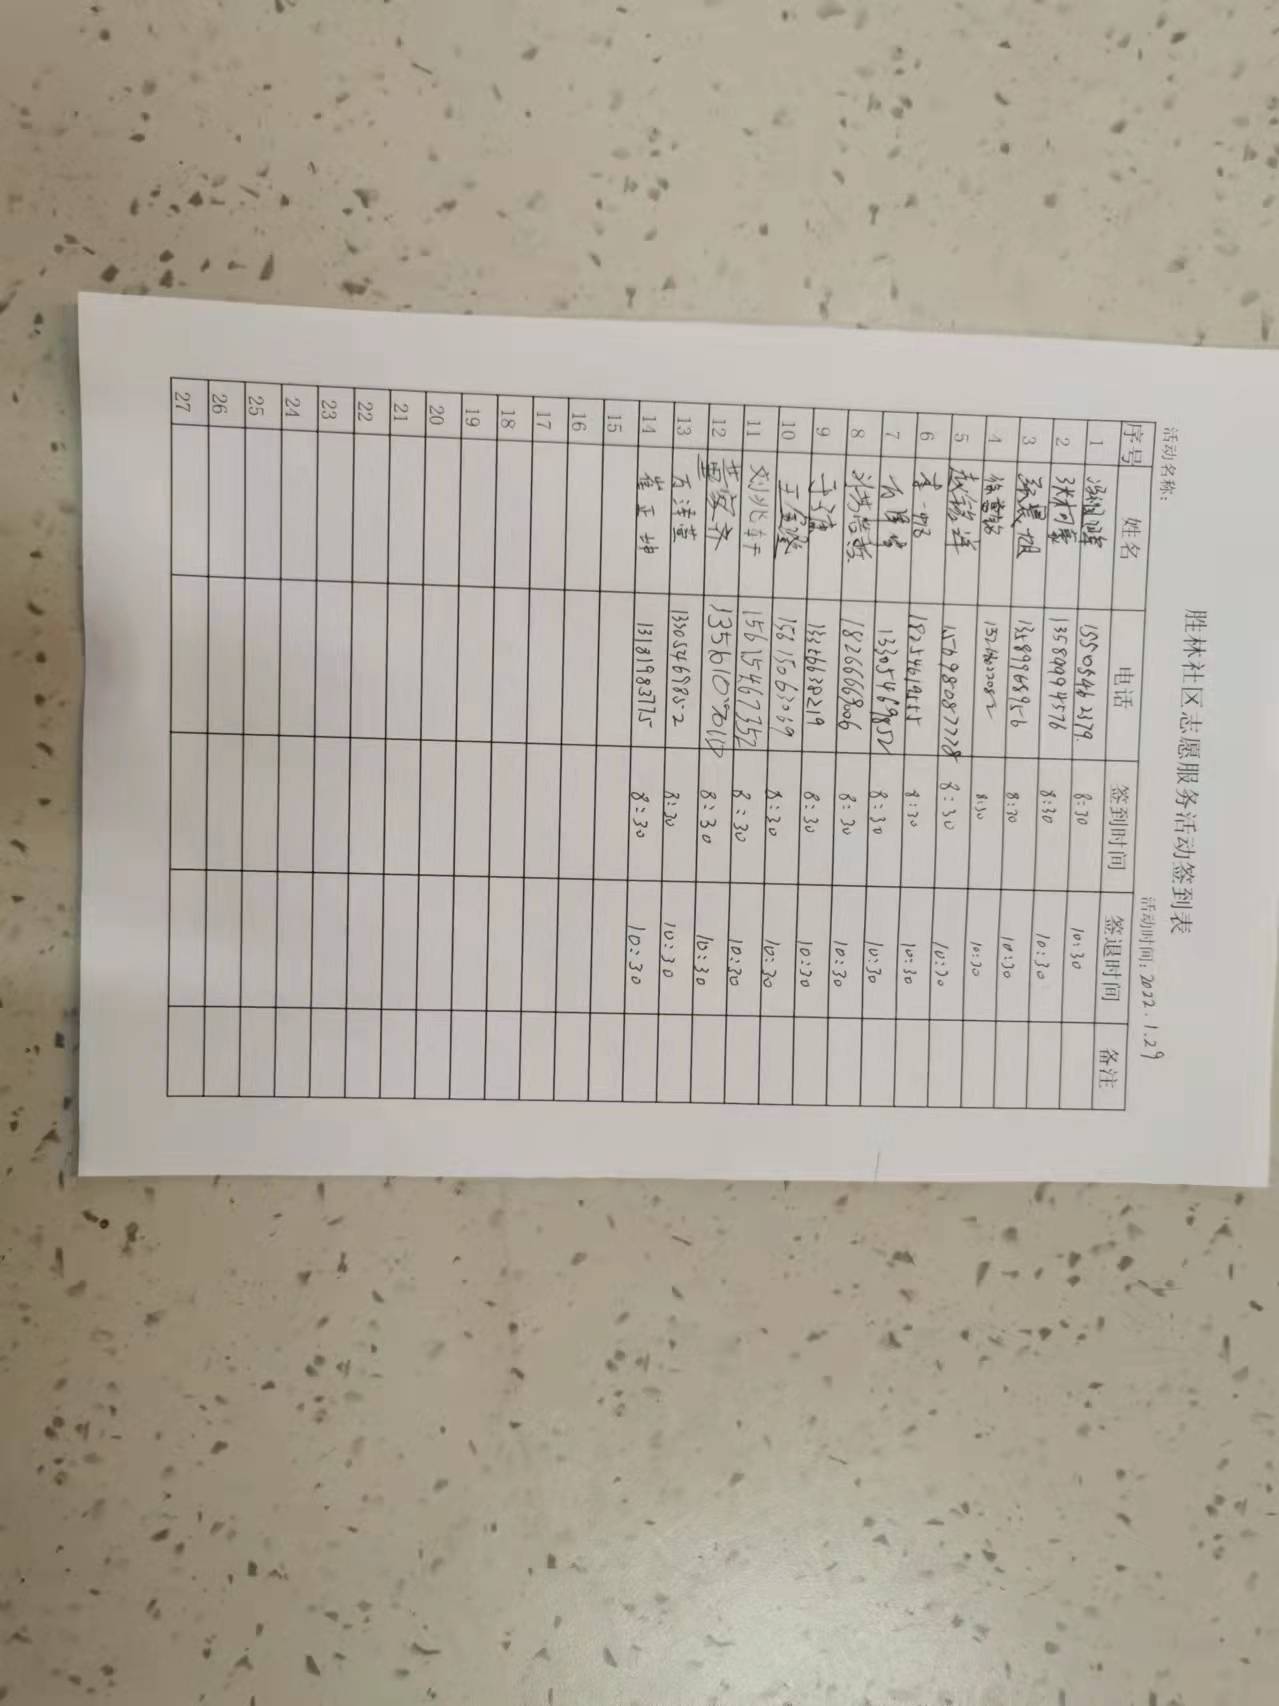 胜林社区志愿服务活动签到表
活动名称: 活动时间: 2022.1.29
序号 姓名 电话 签到时间 签退时间 备注
1 15505462379. 8:30 10:30
2 13589994576 8:30 10:30
3 孙晨旭 13589968956 8:30 10:30
4 8:30 10:30
5 赵锦洋 15698087728 8:30 10:30
6 李一帆 18254619555 8:30 10:30
7 13305469852 8:30 10:30
8 18266668006 8:30 10:30
9 13326638219 8:30 10:30
10 15615063069 8:30 10:30
11 刘兆轩 15615467352 8:30 10:30
12 8:30 10:30
13 万泽萱 13305469852 8:30 10:30
14 崔正坤 13181983775 8:30 10:30
15
16
17
18
19
20
21
22
23
24
25
26
27